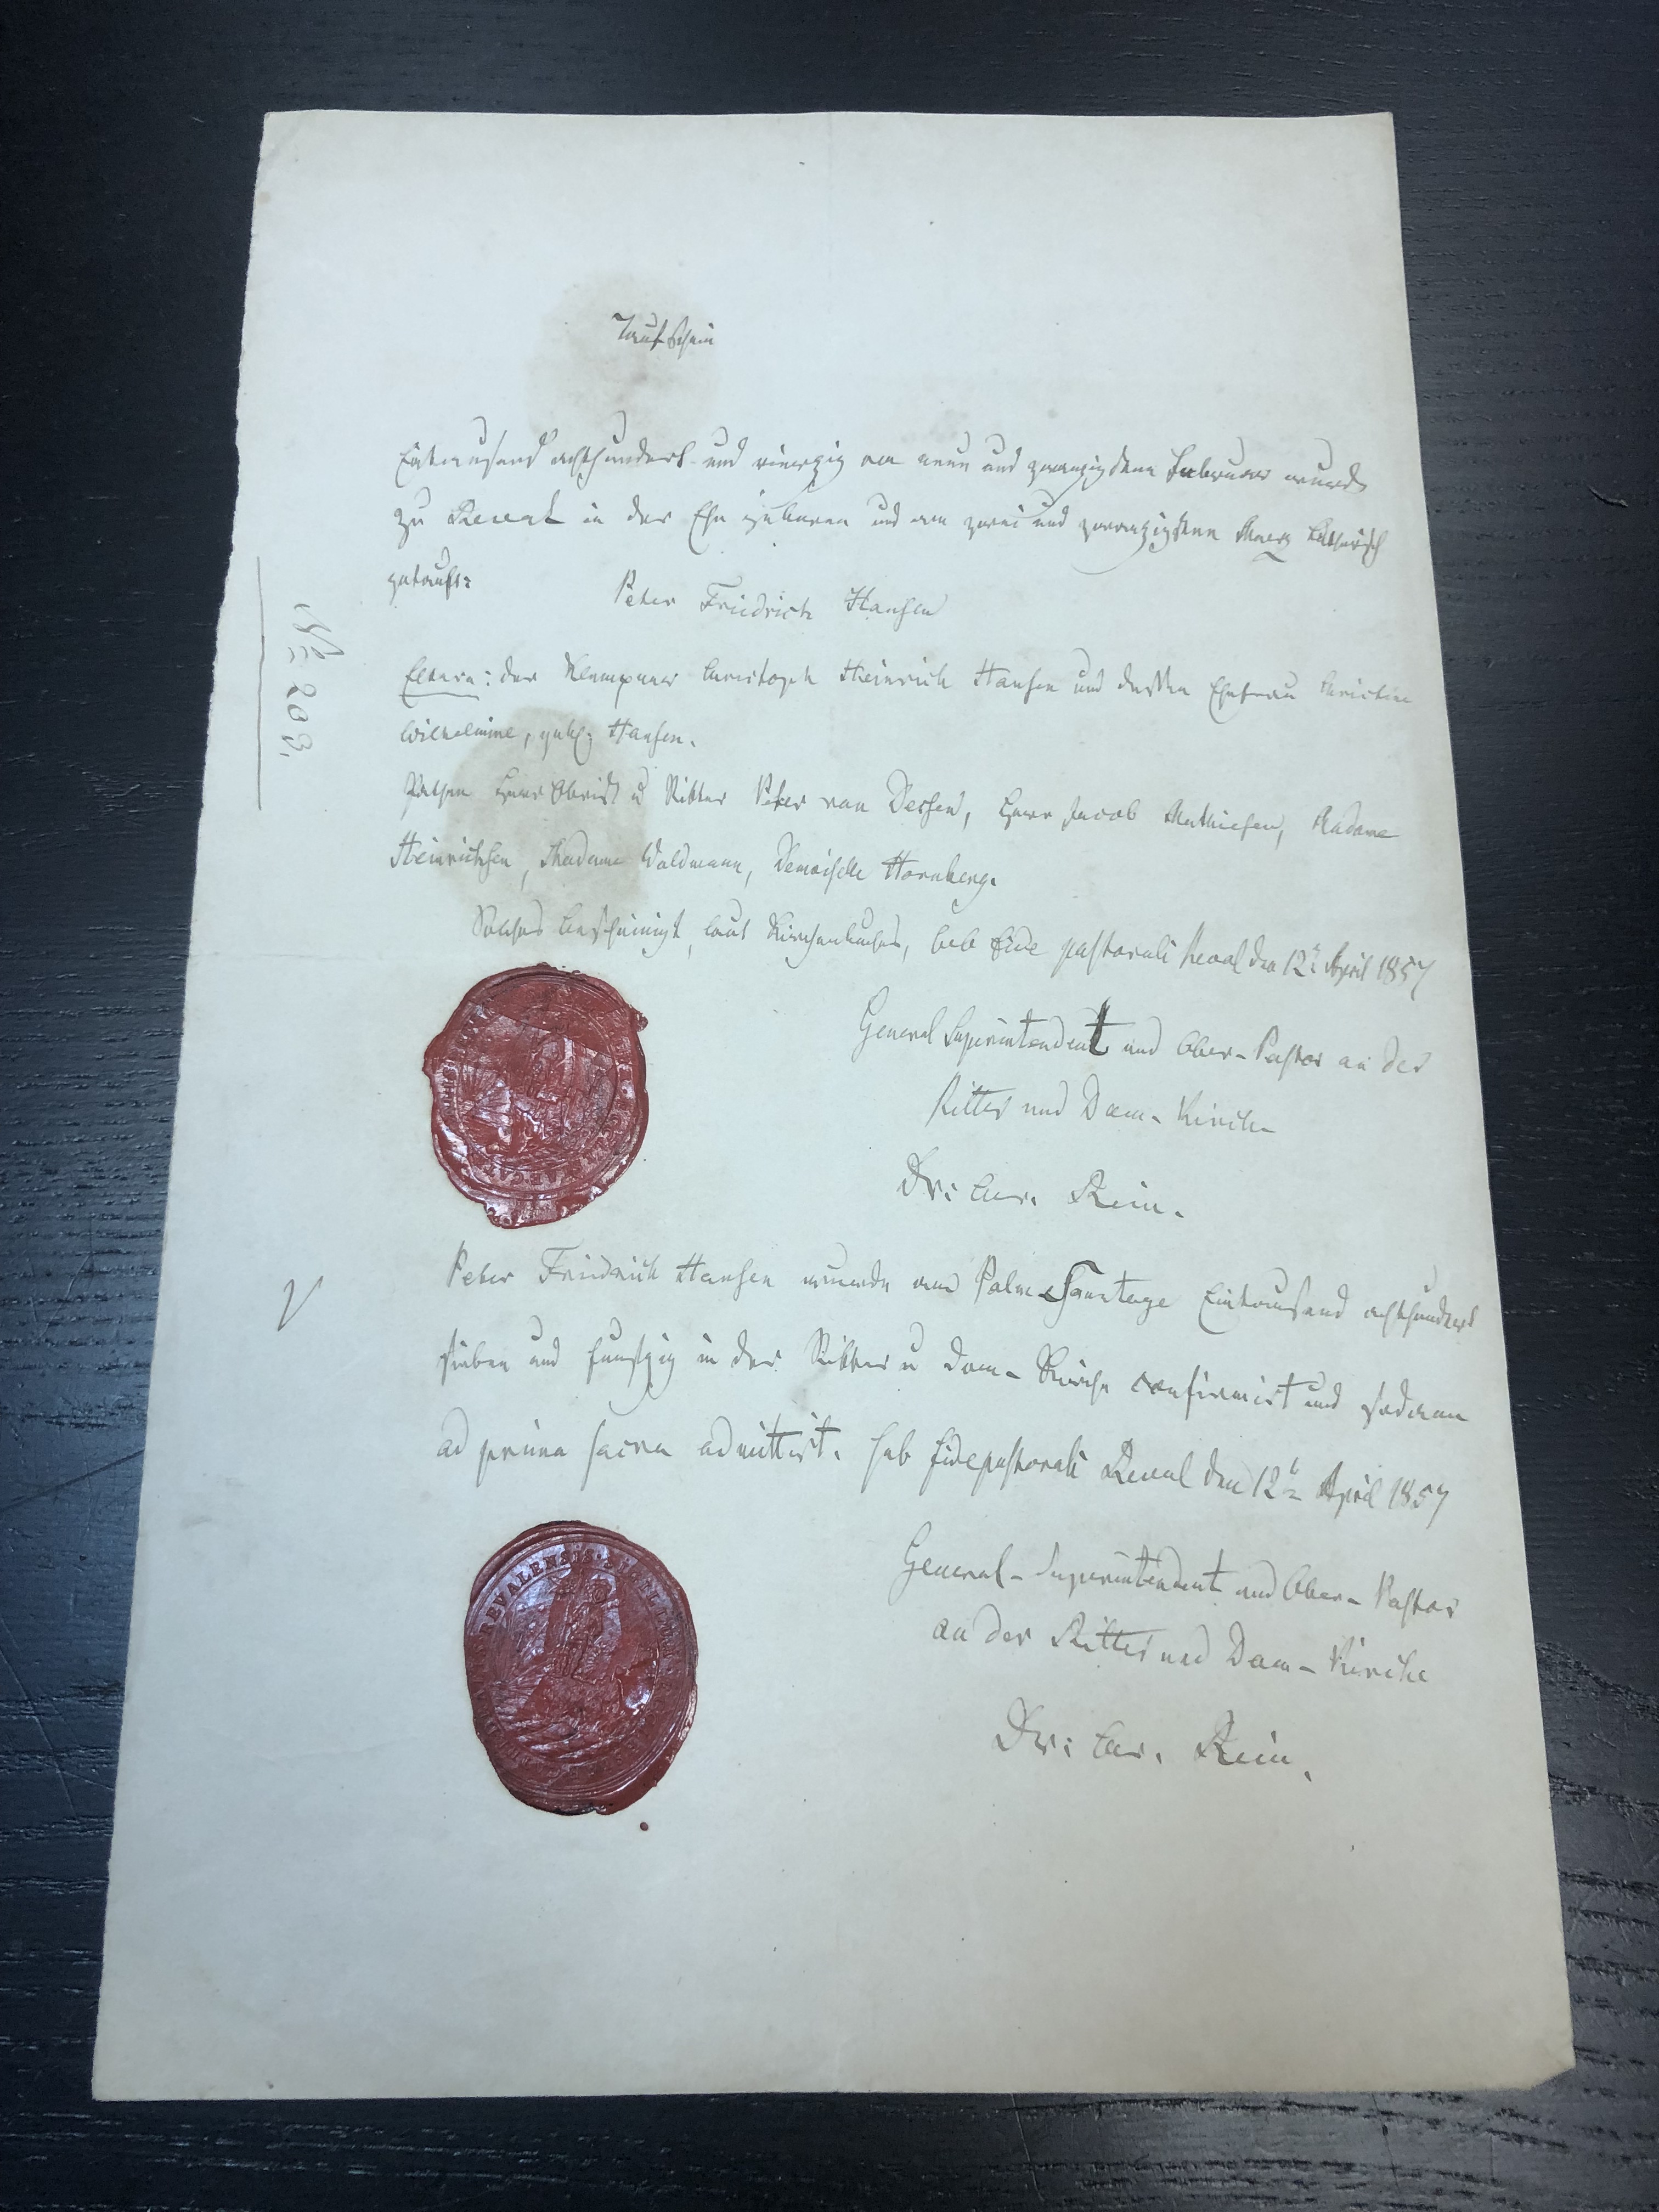 Taufschein
Eintausend achthundert und vierzig am neun und zwanzigsten Februar wurde
zu Reval in der Ehe geboren und am zwei und zwanzigsten Maerz Lutherisch
getauft:
Peter Friedrich Hansen
Eltern: der Klempner Christoph Heinrich Hansen und dessen Ehefrau Christine
Wilhelmine, geb: Hansen.
Pathen Herr Obrist u Ritter Peter von Dessen, Herr Jacob Mathiesen, Madame
Heinrichsen, Madame Woldmann, Demoiselle Hornberg.
Solches bescheinigt, laut Kirchenbuches, sub fide pastorali Reval den 12t April 1857
General Superintendent und Ober-Pastor an der
Ritter und Dom-Kirche
Dr: Chr. Rein.
Peter Friedrich Hansen wurde am Palm Sonntage Eintausend achthundert
sieben und funfzig in der Ritter u Dom-Kirche confirmirt und sodann
ad prima sacra admittirt. sub fide pastorali Reval den 12t April 1857
General-Superintendent und Ober-Pastor
an der Ritter und Dom-Kirche
Dr: Chr. Rein.
№ 203.
REVALENSIS